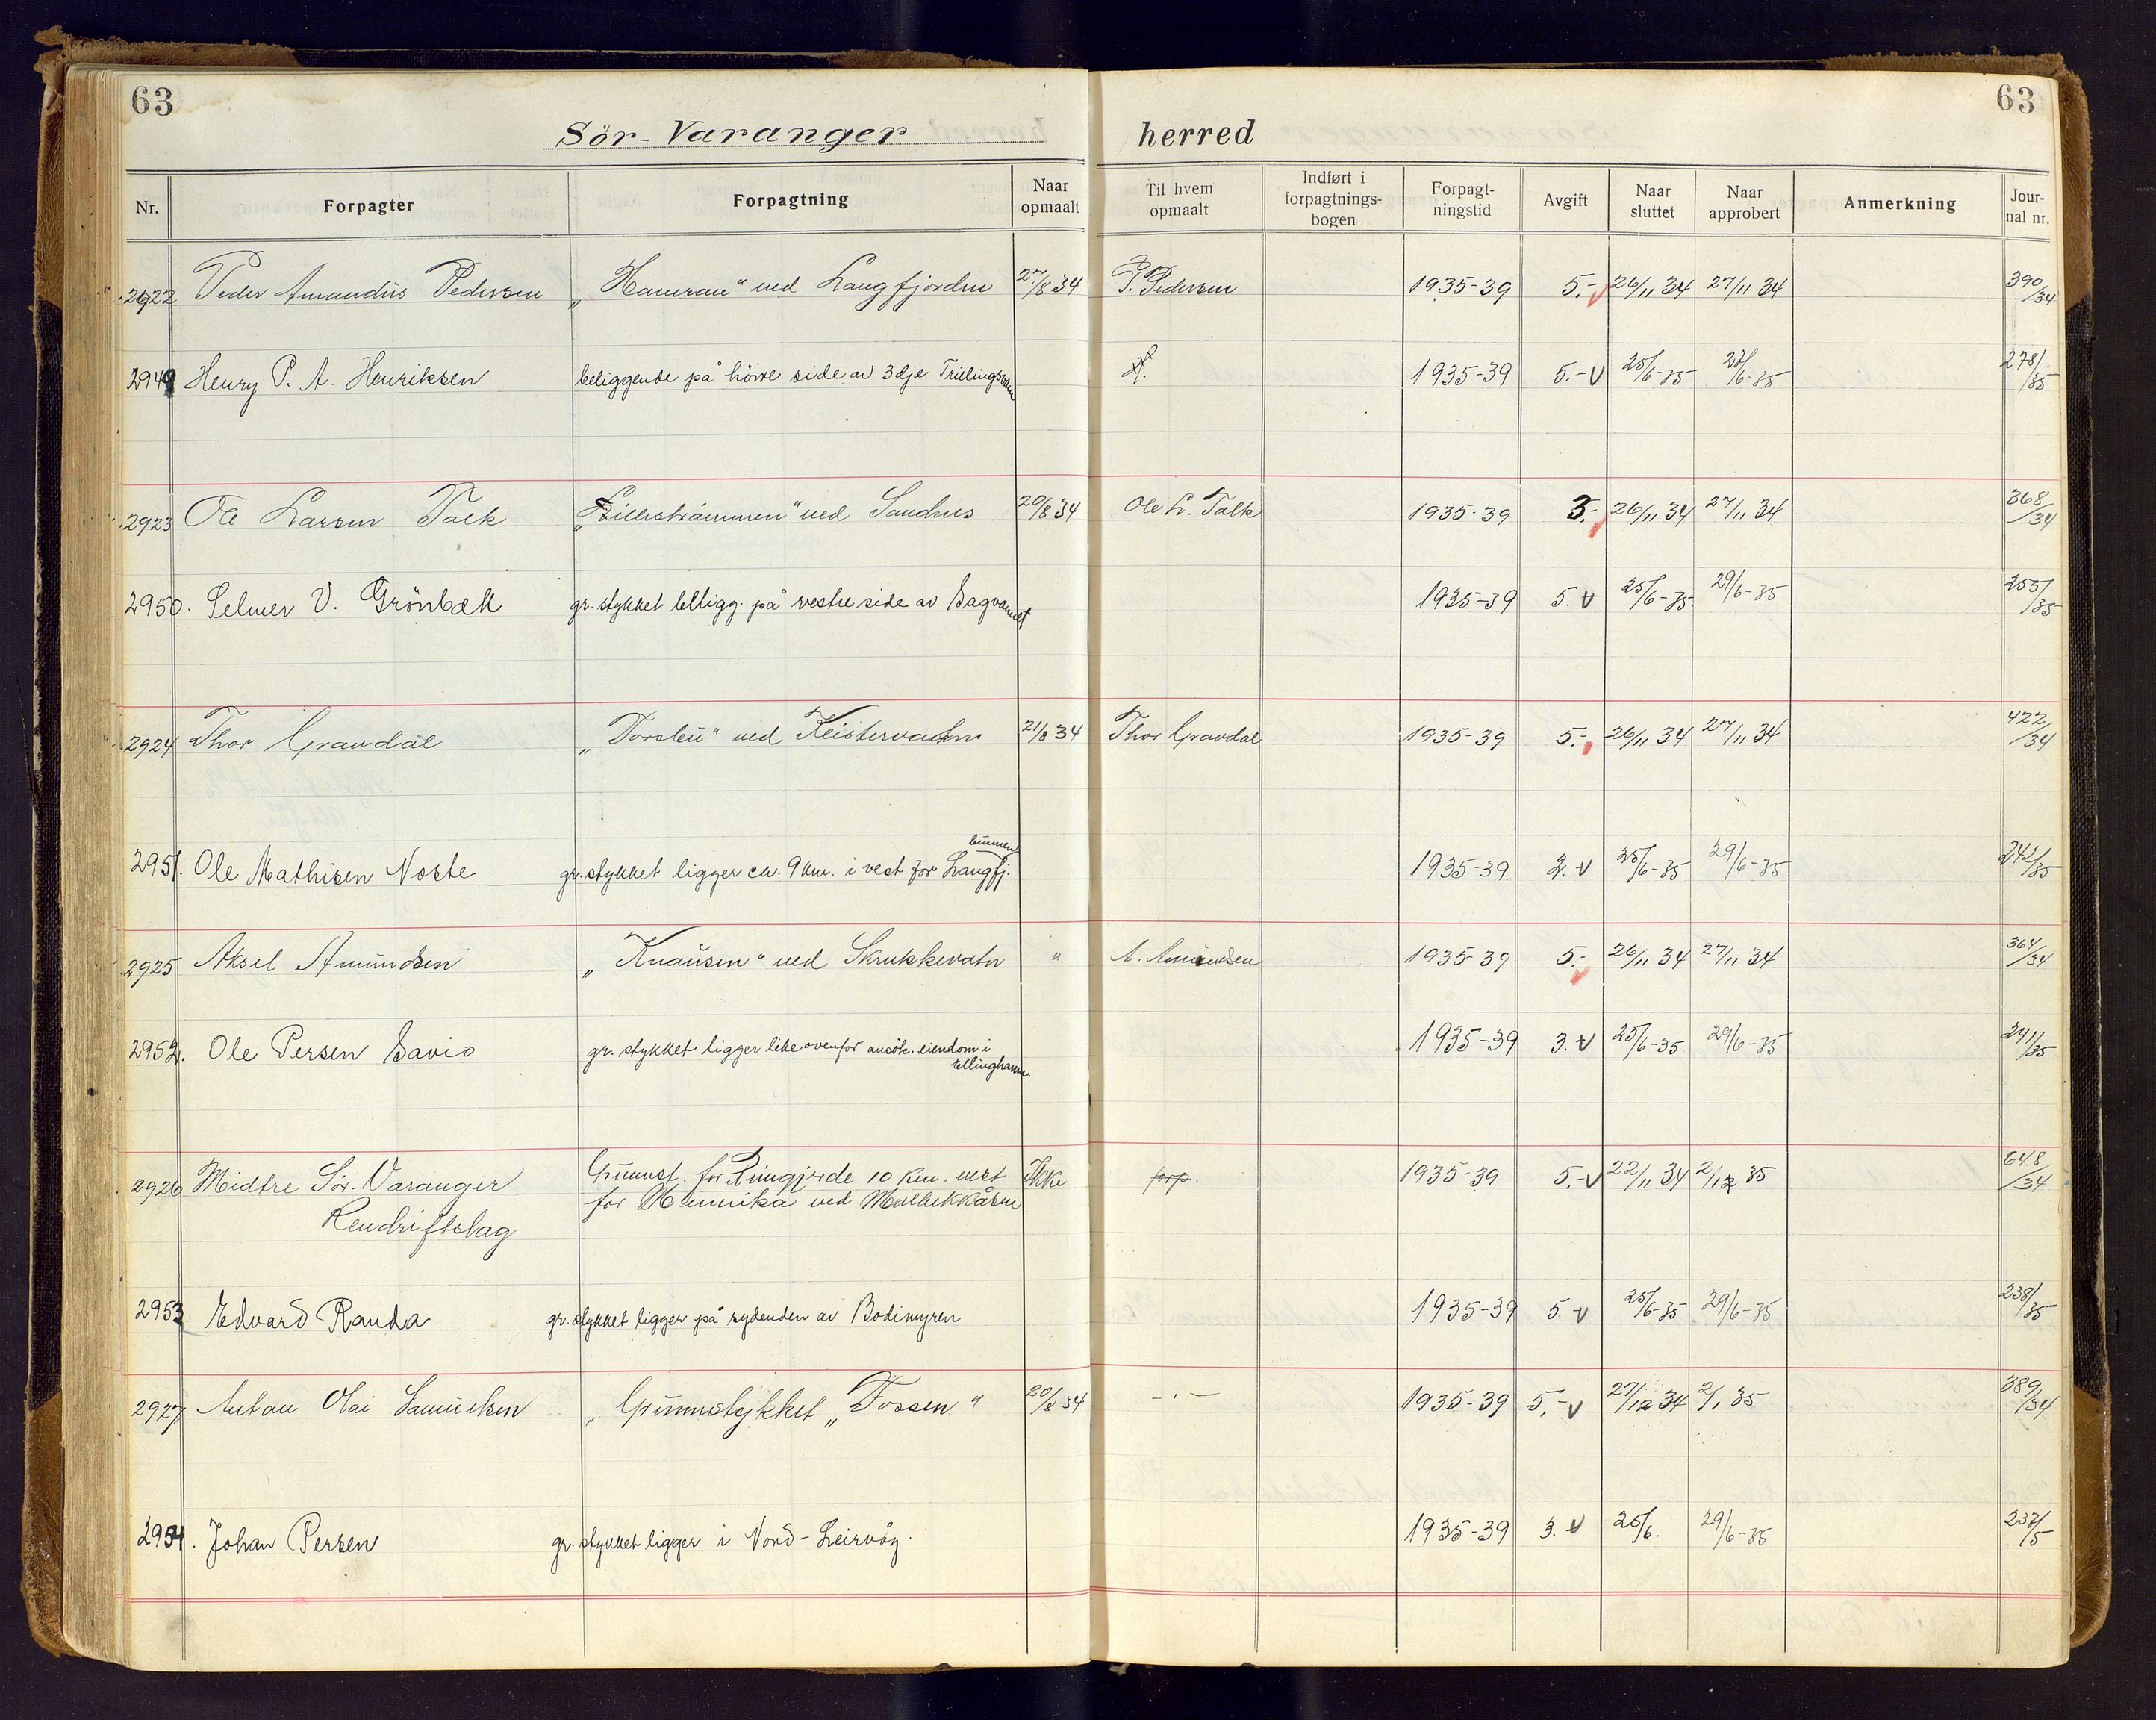 63
63
Sör-Varanger herred
Nr. Forpagter Forpagtning Naar opmaalt Til hvem opmaalt Indført i forpagtnings-bogen Forpagt-ningstid Avgift Naar sluttet Naar approbert Anmerkning Jour-nal nr.
2922 Peder Amandus Pedersen „Hamran" ved Langfjorden 27/8 34 P. Pedersen 1935-39 5.- 26/11 34 27/11 34 390/34
2949 Henry P. A. Henriksen beliggende på höire side av 3dje 1935-39 5.- V 25/6-35 278/35
2923 Ole Larsen Talk ved Sandnes 20/8 34 Ole L. Talk 1935-39 3.- 26/11 34 27/11 34 368/34
2950. Selmer V. Grönbækk gr. stykket beligg. på vestre side av 1935-39 5. V 25/6-35. 29/6-35 255/35
2924 Thor Gravdal ved 21/8 34 Thor Gravdal 1935-39 5.- 26/11 34 27/11 34 422/34
2951. Ole Mathisen Noste gr. stykket ligger ca. 9 km. i vest for Langfj. bunnen 1935-39. 2. V 25/6-35 29/6-35 242/35
2925 Aksel Amundsen „Knausen" ved Skrukkevatn " A. Amundsen 1935-39 5.- 26/11 34 27/11 34 364/34
2952. Ole Persen Savio gr. stykket ligger like ovenfor ansök. eiendom i 1935-39 3. V 25/6-35. 29/6-35 241/35
2926 Midtre Sör-Varanger Grunnst. for 10 km. vest Ikke forp. 1935-39 5.- V 22/11 34 35 648/34
Rendriftslag for Munnika ved
2953. Edvard Randa gr. stykket ligger på sydenden av Bodimyren 1935-39 5. V 25/6-35 29/6-35 238/35
2927 Antan Olai Samuelsen „Grunnstykket „Fossen" 20/8 34 -"- 1935-39 5.- V 27/12 34 2/1 35 389/34
2954. Johan Persen gr. stykket ligger i Nord-Leirvåg. 1935-39 3. V 25/6. 29/6-35 237/5